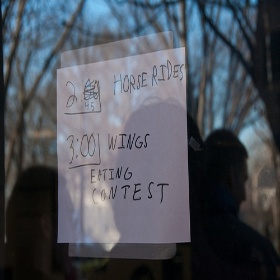 2: 45 HORSE RIDES
3:00 WINGS
EATING
CONTEST